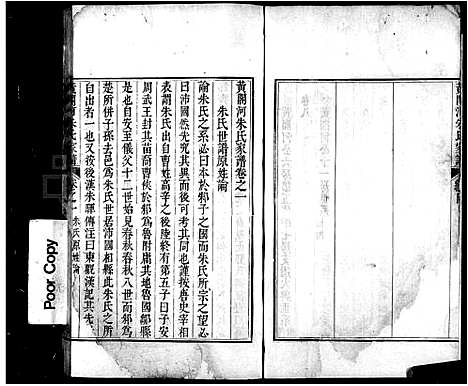 黃閣河朱氏家譜卷之一
朱氏世譜原姓論
論朱氏之系必曰本於邾子之國而朱氏所宗之望必
曰沛國然先究其原而後可知其所自也謹按唐史宰相
表謂朱氏出自曹姓高子之後陸終有第五子曰子安
周武王封其苗裔曹俠於邾為魯附庸其地魯國鄒縣
是也自安至儀父十二世始見春秋春秋八世而邾為
楚所併子孫去邑為朱氏世居沛國相縣此朱氏之所
自出者一也又按後漢朱暉傳注曰東觀漢記其先
黃閣河朱氏家譜
卷之一
朱氏原姓論
一
Poor Copy